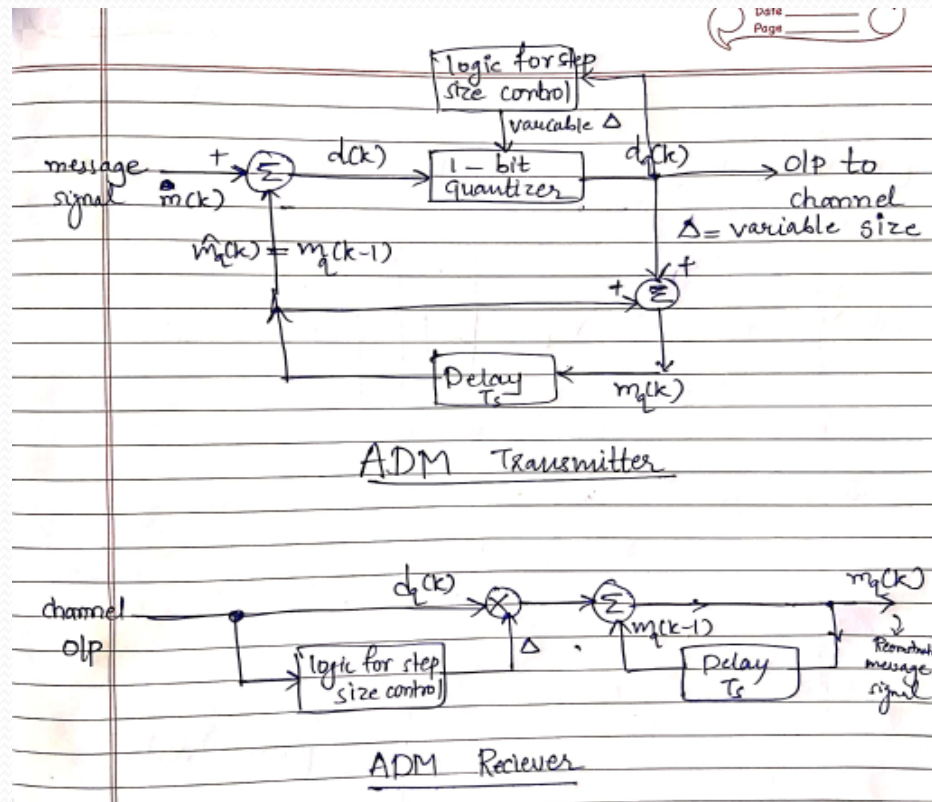 Date
Page
logic for step
size control
variable Δ
message
signal
+
m(k)
Σ
d(k)
1-bit
quantizer
dq(k)
O/P to
channel
Δ = variable size
-
m̂q(k) = mq(k-1)
+
+
Σ
Delay
Ts
mq(k)
ADM Transmitter
channel
O/P
dq(k)
×
Σ
mq(k)
mq(k-1)
Δ
logic for step
size control
Delay
Ts
message
signal
ADM Reciever